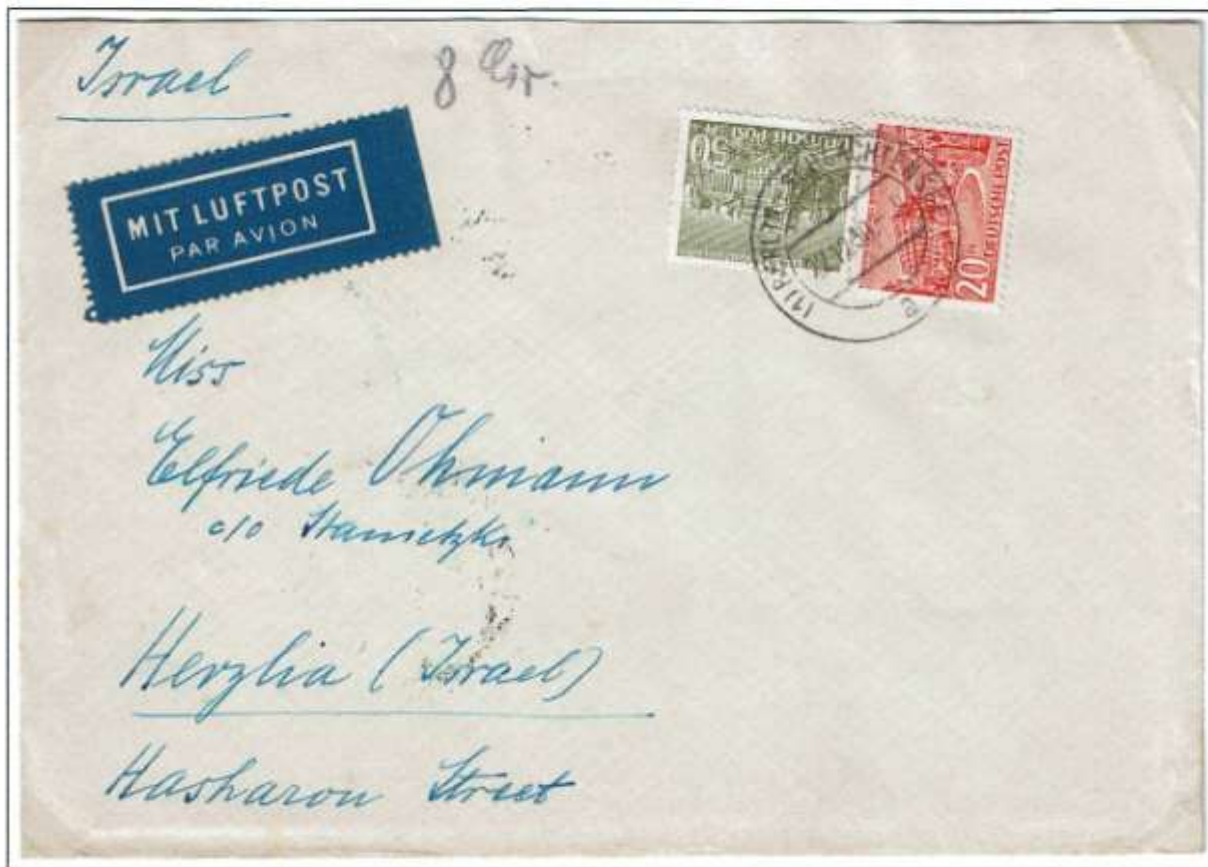 Israel
8 Gr.
MIT LUFTPOST
PAR AVION
50 DEUTSCHE POST
20 DEUTSCHE POST
(1) BERLIN
Miss
Elfriede Ohmann
c/o Stanietzki
Herzlia (Israel)
Hasharon Street